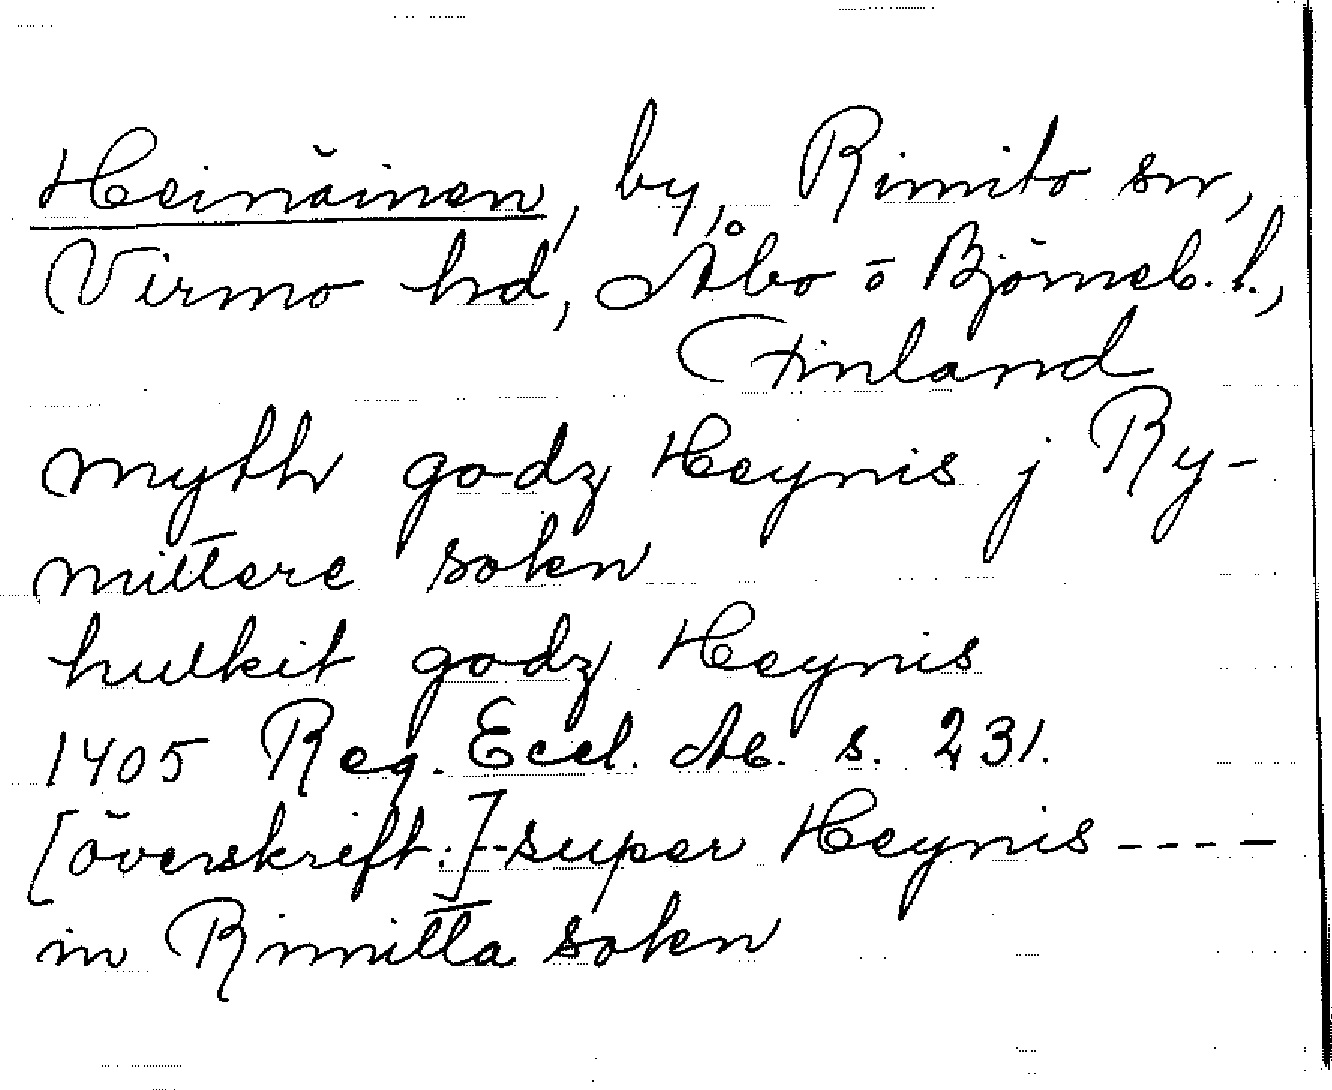 Heinäinen, by, Rimito sn,
Virmo hd, Åbo o Björneb. l.,
Finland
myth godz Heynis j Ry-
mittere sokn
hulkit godz Heynis
1405 Reg. Eccl. Ab. s. 231.
[överskrift:]--super Heynis----
in Rimitta sokn